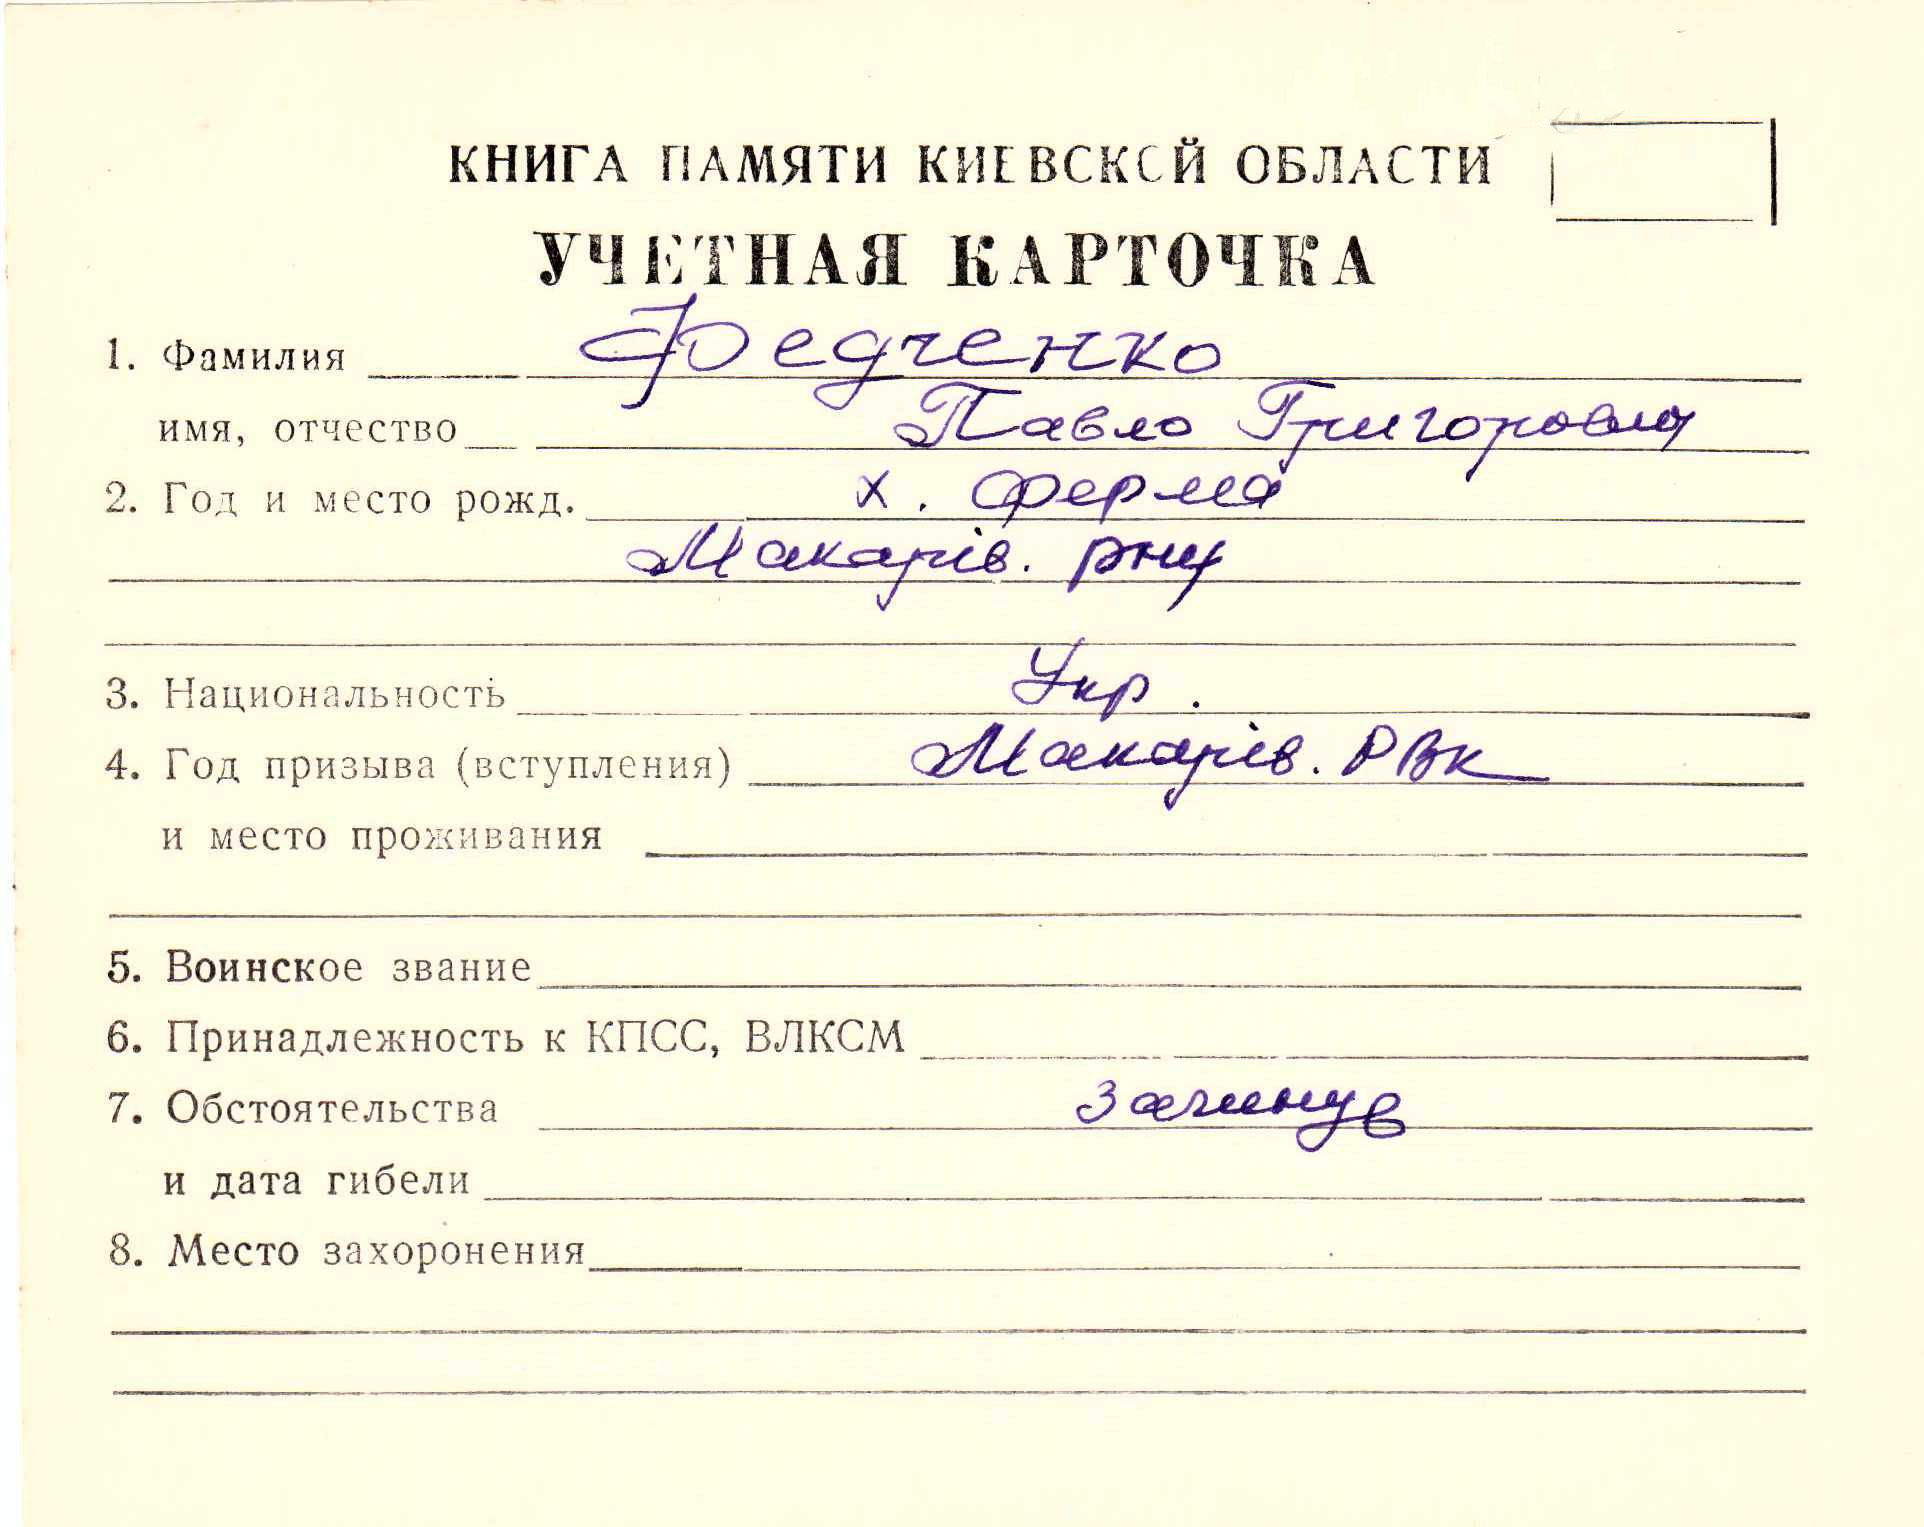 КНИГА ПАМЯТИ КИЕВСКОЙ ОБЛАСТИ
УЧЕТНАЯ КАРТОЧКА
1. Фамилия Федченко
имя, отчество Павло Григорович
2. Год и место рожд. х. Ферма
Макарів. рну
3. Национальность Укр.
4. Год призыва (вступления) Макарів. РВк
и место проживания
5. Воинское звание
6. Принадлежность к КПСС, ВЛКСМ
7. Обстоятельства загинув
и дата гибели
8. Место захоронения